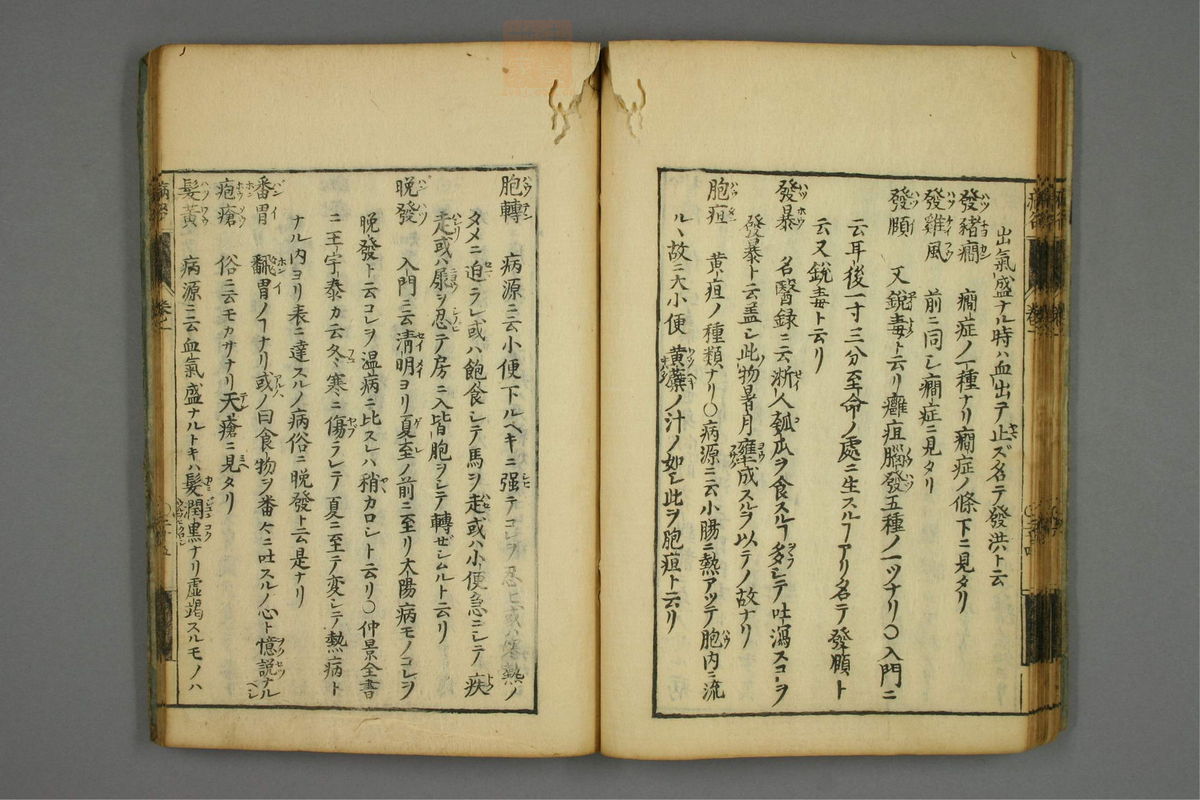 出氣盛ナル時ハ血出テ止ズ名テ發洪ト云
發豬癇 癇症ノ一種ナリ癇症ノ條下ニ見タリ
發雞風 前ニ同シ癇症ニ見タリ
發頤 又銳毒ト云リ癰疽腦發五種ノ一ツナリ〇入門ニ
云耳後一寸三分至命ノ處ニ生スルヿアリ名テ發頤ト
云又銳毒ト云リ
發暴 名醫録ニ云浙人瓠瓜ヲ食スルヿ多シテ吐瀉スコヽヲ
發暴ト云盖シ此物暑月壅成スルヲ以テノ故ナリ
胞疸 黄疸ノ種類ナリ〇病源ニ云小腸ニ熱アツテ胞内ニ流
ルヽ故ニ大小便黄蘗ノ汁ノ如シ此ヲ胞疸ト云リ
胞轉 病源ニ云小便下ルヘキニ强テコレヲ忍ヒ或ハ寒熱ノ
タメニ迫ラレ或ハ飽食シテ馬ヲ走或ハ小便急ニシテ疾
走或ハ尿ヲ忍テ房ニ入皆胞ヲシテ轉ゼシムルト云リ
晩發 入門ニ云清明ヨリ夏至ノ前ニ至リ太陽病モノコレヲ
晩發ト云コレヲ温病ニ比スレハ稍カロシト云リ〇仲景全書
ニ王宇泰カ云冬寒ニ傷ラレテ夏ニ至テ変シテ熱病ト
ナル内ヨリ表ニ達スルノ病俗ニ晩發ト云是ナリ
番胃 飜胃ノヿナリ或ノ曰食物ヲ番々ニ吐スルノ心ト憶説ナルベシ
疱瘡 俗ニ云モカサナリ天瘡ニ見タリ
髮黄 病源ニ云血氣盛ナルトキハ髮潤黒ナリ虚竭スルモノハ